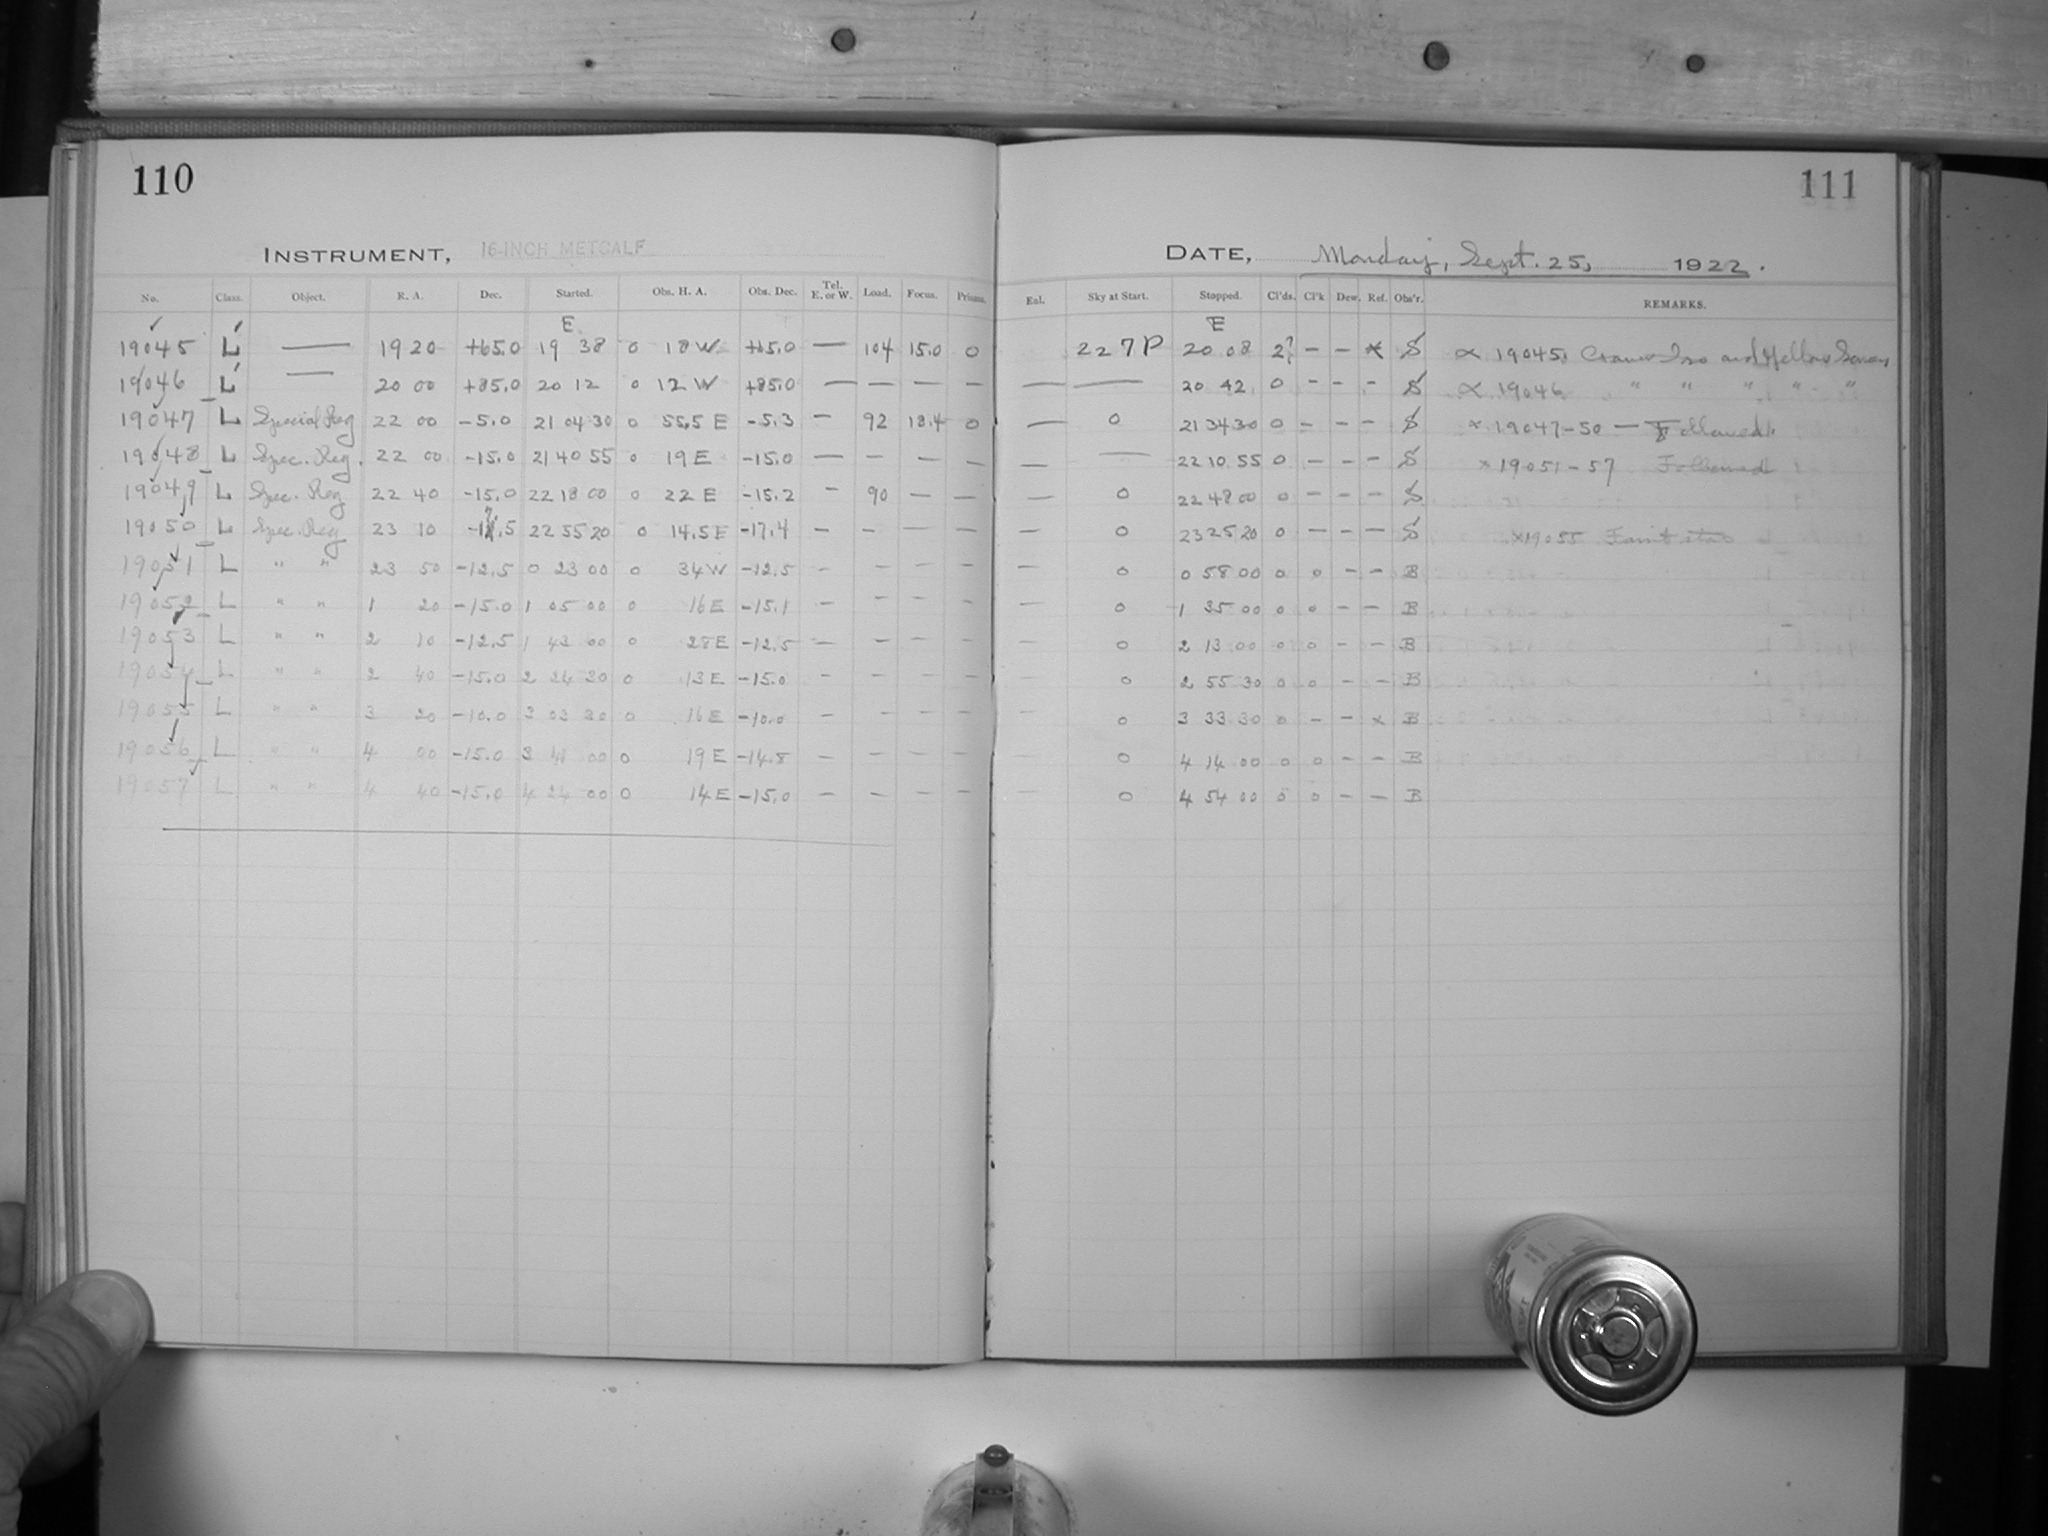 110
111
INSTRUMENT, 16-INCH METCALF
DATE, Monday, Sept. 25, 1922.
No. Class. Object. R. A. Dec. Started. Obs. H. A. Obs. Dec. Tel. E. or W. Load. Focus. Prisms. Enl. Sky at Start. Stopped. Cl'ds. Cl'k Dew. Ref. Obs'r. REMARKS.
E E
19045 L — 19 20 +65.0 19 38 0 18 W +65.0 — 104 15.0 0 227P 20 08 2? – – × S × 19045, Cramer Iso and Yellow Screen
19046 L — 20 00 +85.0 20 12 0 12 W +85.0 — — — — — — 20 42 0 – – – S × 19046 " " " " "
19047 L Special Reg 22 00 -5.0 21 04 30 0 55.5 E -5.3 – 92 18.4 0 — 0 21 34 30 0 – – – S × 19047-50 — Followed.
19048 L Spec. Reg. 22 00 -15.0 21 40 55 0 19 E -15.0 — – – – — — 22 10 55 0 – – – S × 19051-57 Followed
19049 L Spec. Reg 22 40 -15.0 22 18 00 0 22 E -15.2 – 90 – – — 0 22 48 00 0 – – – S
19050 L Spec. Reg 23 10 -17.5 22 55 20 0 14.5 E -17.4 – – – – — 0 23 25 20 0 – – – S × 19055 Faint star
19051 L " " 23 50 -12.5 0 23 00 0 34 W -12.5 – – – – — 0 0 58 00 0 0 – – B
19052 L " " 1 20 -15.0 1 05 00 0 16 E -15.1 – – – – — 0 1 35 00 0 0 – – B
19053 L " " 2 10 -12.5 1 43 00 0 28 E -12.5 – – – – — 0 2 13 00 0 0 – – B
19054 L " " 2 40 -15.0 2 24 30 0 13 E -15.0 – – – – — 0 2 55 30 0 0 – – B
19055 L " " 3 20 -10.0 3 03 30 0 16 E -10.0 – – – – — 0 3 33 30 0 – – × B
19056 L " " 4 00 -15.0 3 41 00 0 19 E -14.8 – – – – — 0 4 14 00 0 0 – – B
19057 L " " 4 40 -15.0 4 24 00 0 14 E -15.0 – – – – — 0 4 54 00 0 0 – – B